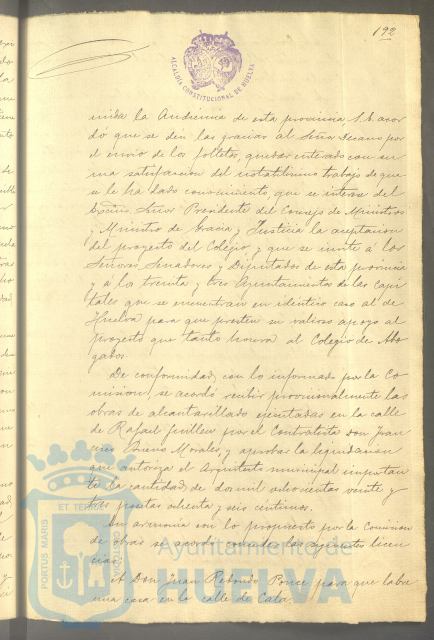 192
ALCALDÍA CONSTITUCIONAL DE HUELVA
unida la Audiencia de esta provincia S.E. acor
dó que se den las gracias al Señor Decano por
el envío de los folletos, quedar enterado con su
ma satisfacción del notabilísimo trabajo de que
se le ha dado conocimiento, que se interese del
Excmo. Señor Presidente del Consejo de Ministros
y Ministro de Gracia y Justicia la aceptacion
del proyecto del Colegio, y que se invite á los
Señores Senadores y Diputados de esta provincia
y á los treinta y tres Ayuntamientos de las capi
tales que se encuentran en identico caso al de
Huelva para que presten su valioso apoyo al
proyecto que tanto honra al Colegio de Abo
gados.
De conformidad con lo informado por la Co
mision, se acordó recibir provisionalmente las
obras de alcantarillado ejecutadas en la calle
de Rafael Guillen por el Contratista Don Fran
cisco Bueno Morales, y aprobar la liquidacion
que autoriza el Arquitecto municipal importan
te la cantidad de dos mil ochocientas veinte y
tres pesetas ochenta y seis centimos.
En armonia con lo propuesto por la Comision
de obras se acordó conceder las siguientes licen
cias:
A Don Juan Rebondo Ponce para que labre
una casa en la calle de Cala.
PORTUS MARIS ET TERRAE CUSTODIA
Ayuntamiento de
HUELVA